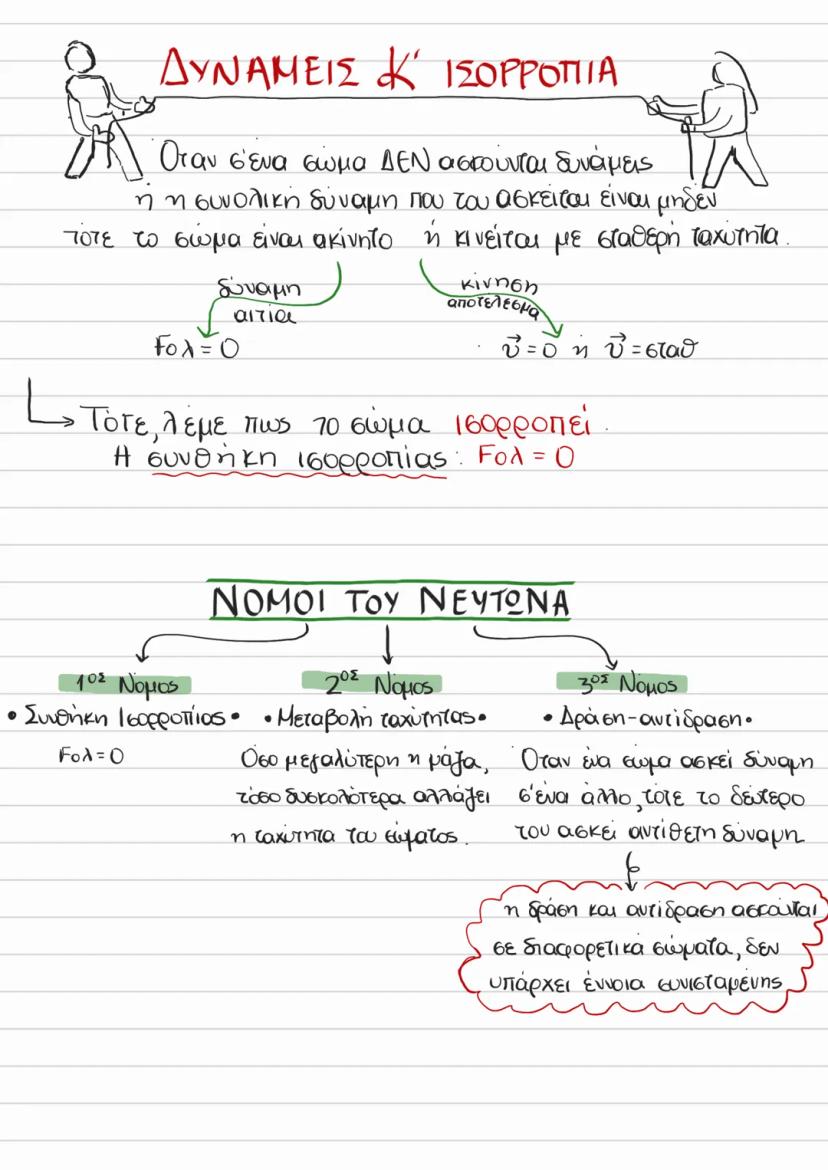 ΔΥΝΑΜΕΙΣ Κ' ΙΣΟΡΡΟΠΙΑ
Όταν σ'ένα σώμα ΔΕΝ ασκούνται δυνάμεις
ή η συνολική δύναμη που του ασκείται είναι μηδέν
τότε το σώμα είναι ακίνητο ή κινείται με σταθερή ταχύτητα.
δύναμη
αιτία
κίνηση
αποτέλεσμα
Fολ = 0
υ⃗ = 0 ή υ⃗ = σταθ
Τότε, λέμε πως το σώμα ισορροπεί.
Η συνθήκη ισορροπίας: Fολ = 0
ΝΟΜΟΙ ΤΟΥ ΝΕΥΤΩΝΑ
1ος Νόμος
2ος Νόμος
3ος Νόμος
• Συνθήκη Ισορροπίας •
• Μεταβολή ταχύτητας •
• Δράση-αντίδραση •
Fολ = 0
Όσο μεγαλύτερη η μάζα,
τόσο δυσκολότερα αλλάζει
η ταχύτητα του σώματος.
Όταν ένα σώμα ασκεί δύναμη
σ'ένα άλλο, τότε το δεύτερο
του ασκεί αντίθετη δύναμη
η δράση και αντίδραση ασκούνται
σε διαφορετικά σώματα, δεν
υπάρχει έννοια συνισταμένης